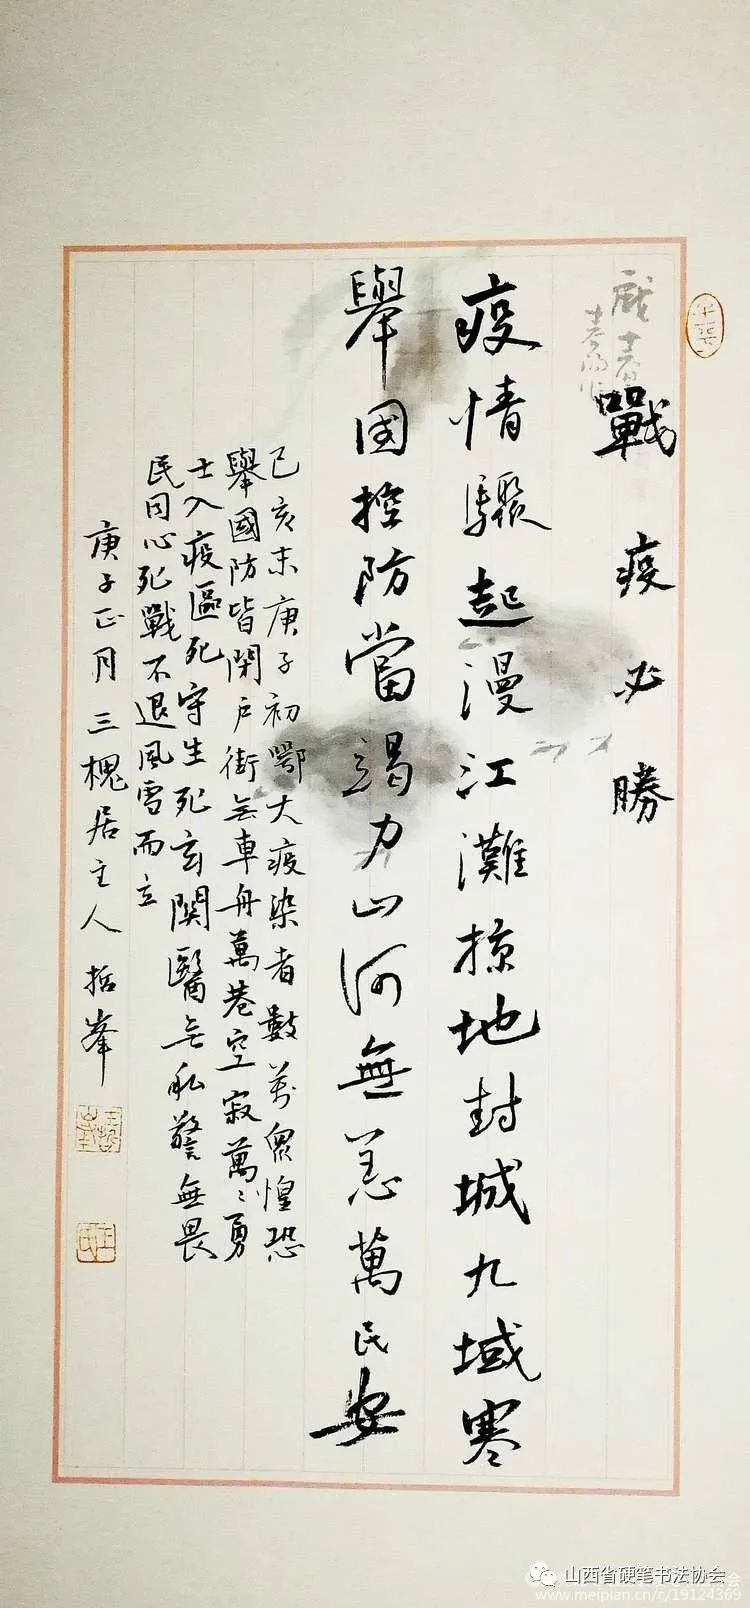 戰疫必勝
疫情驟起漫江灘掠地封城九域寒
舉国控防當竭力山河無恙萬民安
己亥末庚子初鄂大疫染者數万眾惶恐
舉國防皆閉户街无車舟萬巷空寂萬萬勇
士入疫區死守生死玄関醫无私警無畏
民同心死戰不退風雪而立
庚子正月三槐居主人哲峯
山西省硬笔书法协会
www.meipian.cn/c/19124369